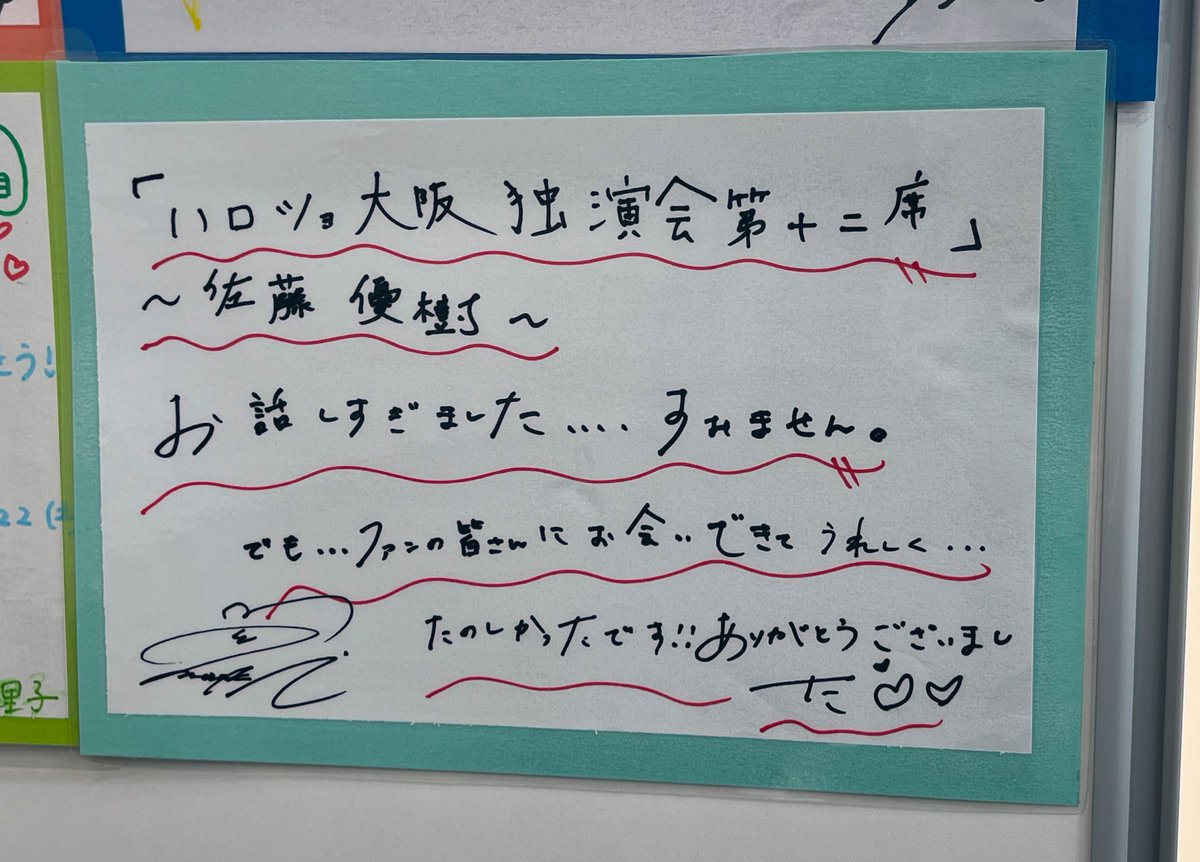 「ハロショ大阪独演会第十二席」
～佐藤 優樹～
お話しすぎました.... すみません。
でも...ファンの皆さんにお会いできてうれしく...
たのしかったです!!ありがとうございまし
た♡♡
とう!
22
里子